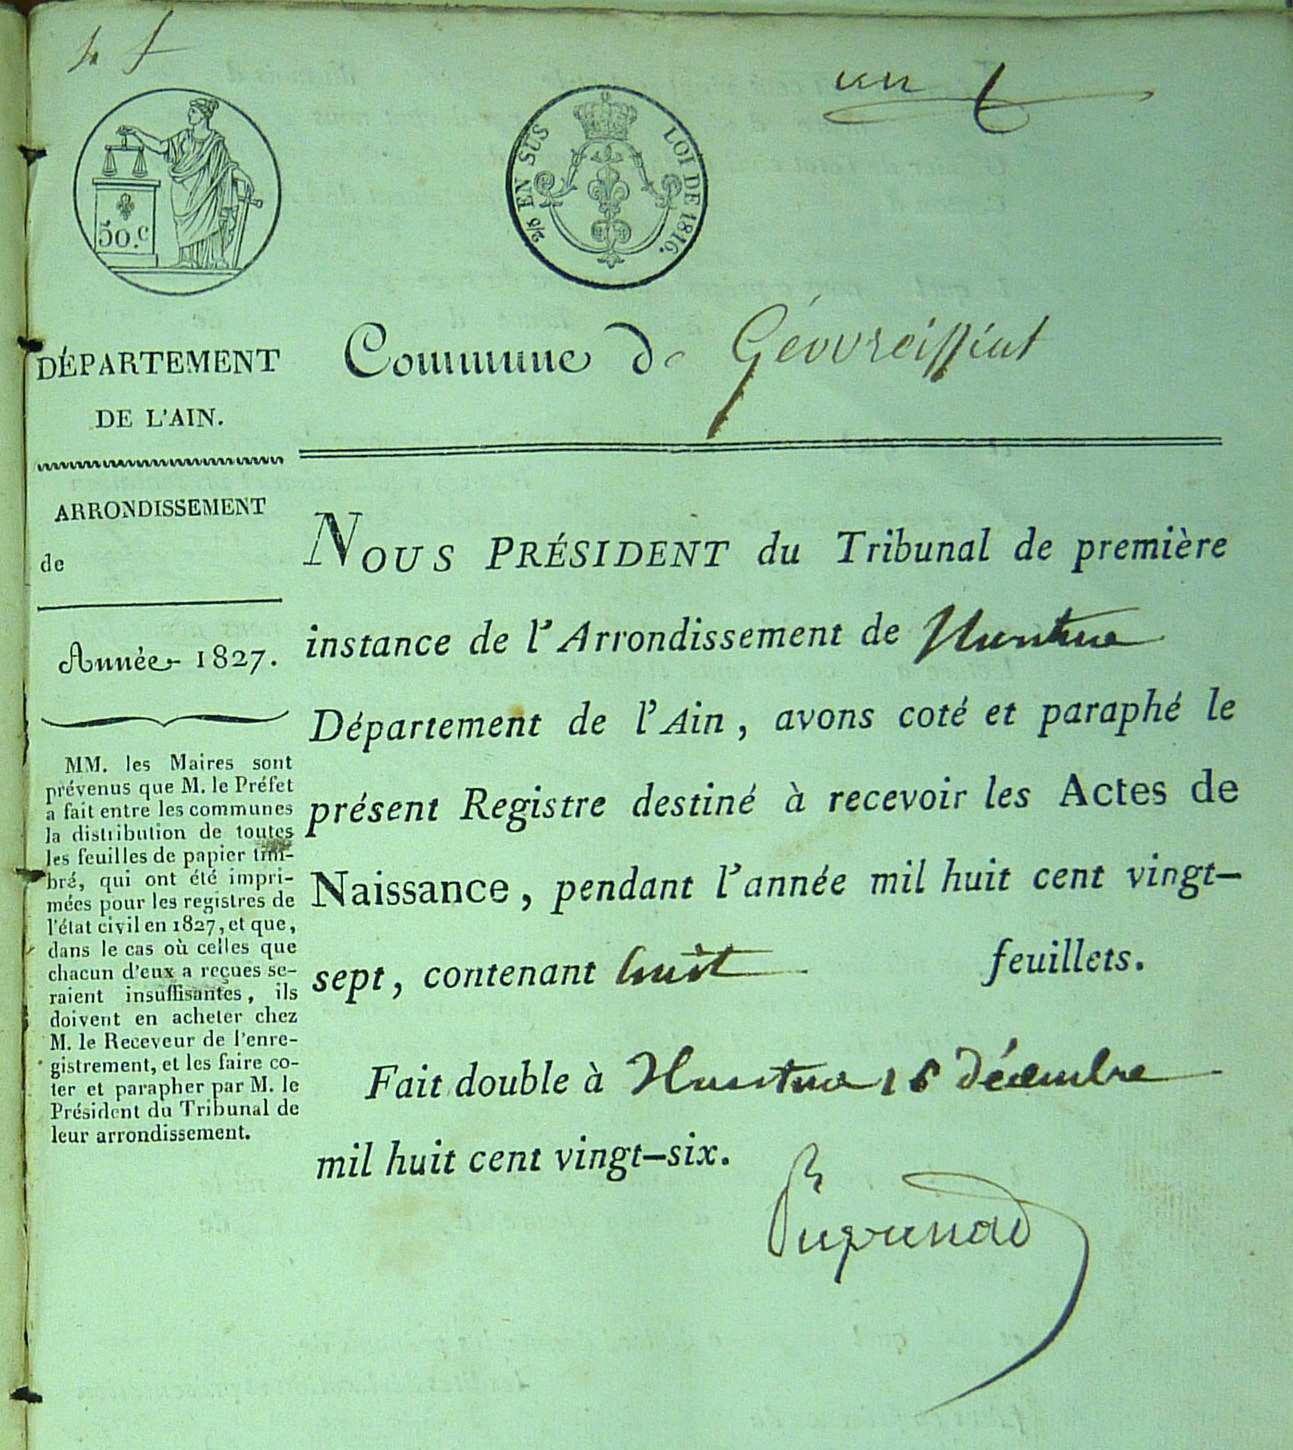 un
50.c
2/5 EN SUS
LOI DE 1816.
DÉPARTEMENT
DE L'AIN.
Commune de Géovreissiat
ARRONDISSEMENT
de
Année 1827.
MM. les Maires sont
prévenus que M. le Préfet
a fait entre les communes
la distribution de toutes
les feuilles de papier tim-
bré, qui ont été impri-
mées pour les registres de
l'état civil en 1827, et que,
dans le cas où celles que
chacun d'eux a reçues se-
raient insuffisantes, ils
doivent en acheter chez
M. le Receveur de l'enre-
gistrement, et les faire co-
ter et parapher par M. le
Président du Tribunal de
leur arrondissement.
NOUS PRÉSIDENT du Tribunal de première
instance de l'Arrondissement de Nantua
Département de l'Ain, avons coté et paraphé le
présent Registre destiné à recevoir les Actes de
Naissance, pendant l'année mil huit cent vingt-
sept, contenant huit feuillets.
Fait double à Nantua décembre
mil huit cent vingt-six.